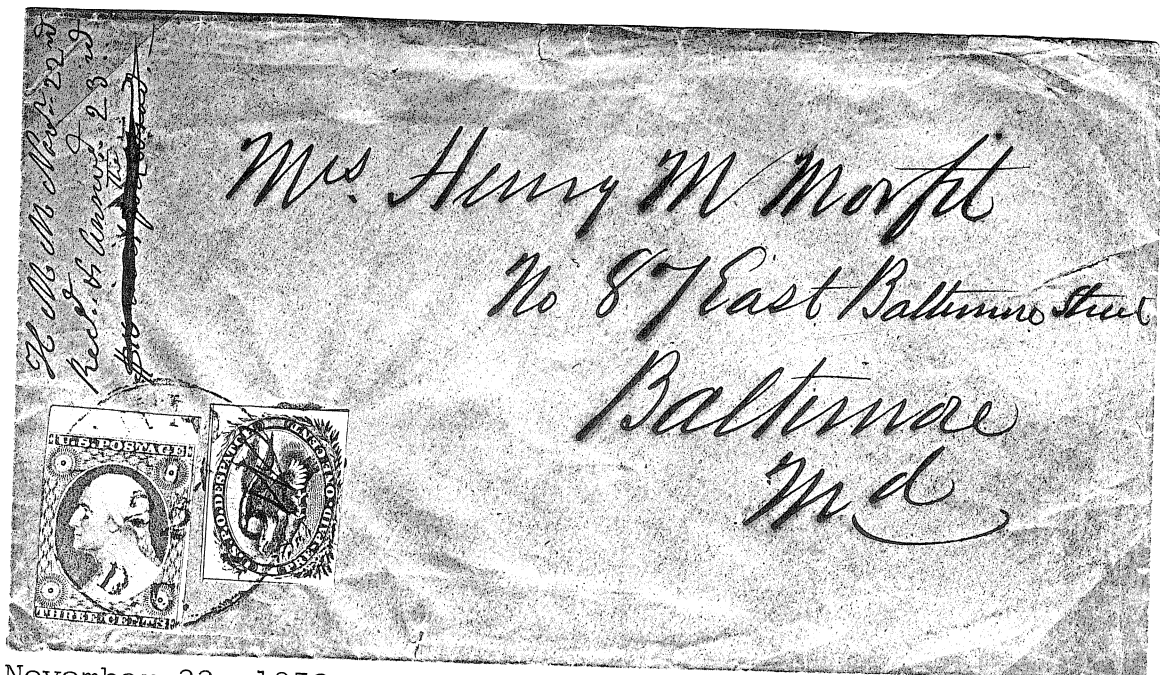 H M M Nov. 22nd
Rec.d & Answd. 23rd
Mrs. Henry M Morfit
No 87 East Baltimore Street
Baltimore
Md
U.S. POSTAGE
THREE CENTS
D